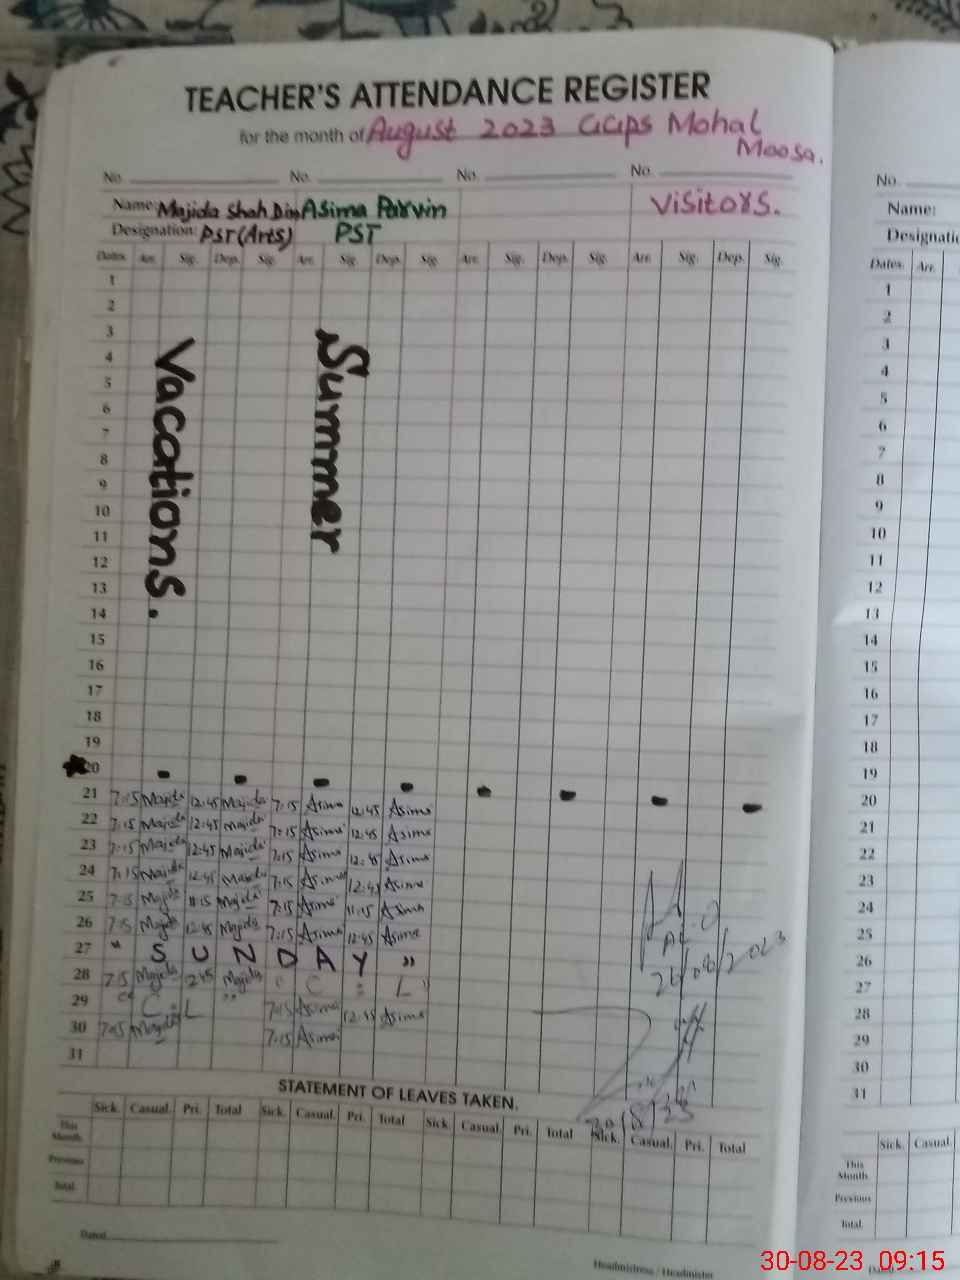 TEACHER'S ATTENDANCE REGISTER
for the month of August 2023 GGPS Mohal
Moosa.
No. No. No. No.
Name: Majida Shah Din Asima Parvin Visitors.
Designation: PST(Arts) PST
Dates. Arr. Sig. Dep. Sig. Arr. Sig. Dep. Sig. Arr. Sig. Dep. Sig. Arr. Sig. Dep. Sig.
1
2
3
4
5
6
7
8
9
10
11
12
13
14
15
16
17
18
19
20
Vacations.
Summer
21 7:15 Majida 12:45 Majida 7:15 Asima 12:45 Asima
22 7:15 Majida 12:45 Majida 7:15 Asima 12:45 Asima
23 7:15 Majida 12:45 Majida 7:15 Asima 12:45 Asima
24 7:15 Majida 12:45 Majida 7:15 Asima 12:45 Asima
25 7:15 Majida 11:15 Majida 7:15 Asima 11:15 Asima
26 7:15 Majida 12:45 Majida 7:15 Asima 12:45 Asima
27 " S U N D A Y "
28 7:15 Majida 12:45 Majida " C : L "
29 " C : L " 7:15 Asima 12:45 Asima
30 7:15 Majida 7:15 Asima
31
26/08/2023
30/8/23
STATEMENT OF LEAVES TAKEN.
Sick. Casual. Pri. Total Sick. Casual. Pri. Total Sick. Casual. Pri. Total Sick. Casual. Pri. Total
This Month.
Previous
Total.
Dated
Headmistress / Headmister
No.
Name:
Dates. Arr.
1
2
3
4
5
6
7
8
9
10
11
12
13
14
15
16
17
18
19
20
21
22
23
24
25
26
27
28
29
30
31
Sick. Casual.
This Month
Previous
Total.
30-08-23 09:15